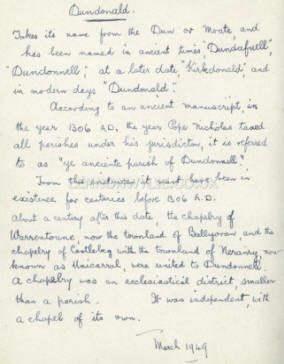 Dundonald.
Takes its name from the Dun or Moate, and
has been named in ancient times "Dundafuell",
"Dundonnell", at a later date, "Kirkdonald", and
in modern days "Dundonald".
According to an ancient manuscript, in
the year 1306 A.D, the year Pope Nicholas taxed
all parishes under his jurisdiction, it is referred
to as "ye anciente parish of Dundonnell".
From this it must have been in
existence for centuries before 1306 A.D.
About a century after this date, the chapelry of
Warrentoune, now the townland of Ballyoran and the
chapelry of Castlebeg with the townland of
known as Unicarval, were united to Dundonnell.
A chapelry was an ecclesiastical district, smaller
than a parish. It was independent, with
a chapel of its own.
March 1949